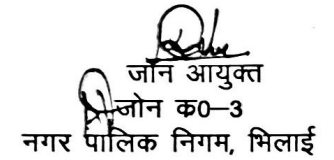 जोन आयुक्त
जोन क0–3
नगर पालिक निगम, भिलाई